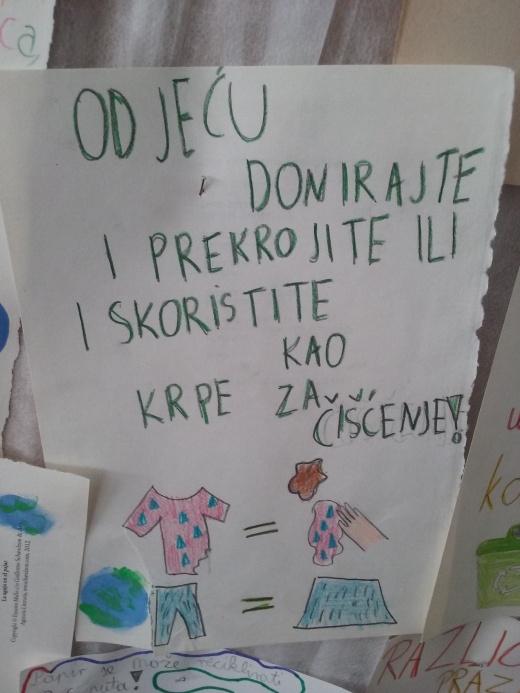 ODJEĆU
DONIRAJTE
I PREKROJITE ILI
ISKORISTITE
KAO
KRPE ZA
ČIŠĆENJE!
Papir se može reciklirati
RAZLIČ
PRAZ